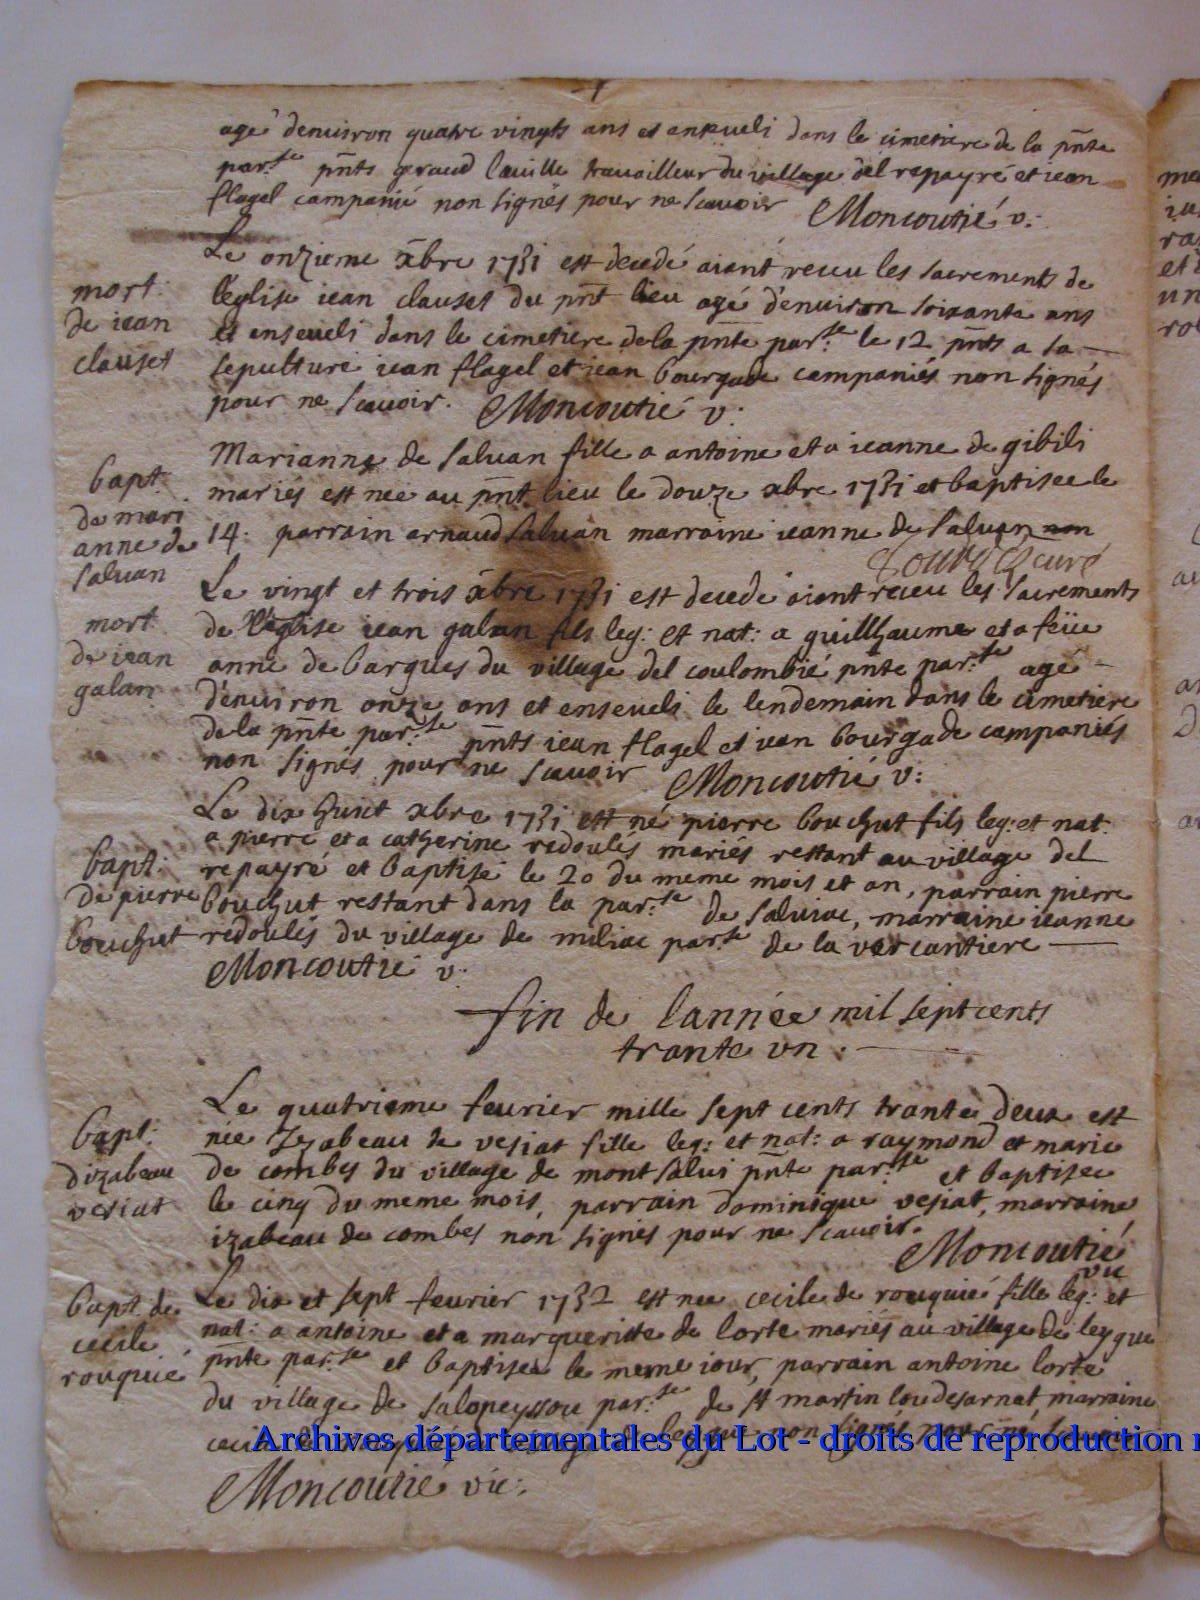 agé denuiron quatre vingts ans et enseueli dans le cimetiere de la pnte
par.se pnts geraud lauille trauailleur du village del repayré et iean
flagel campanié non signés pour ne scauoir Moncoutié v.
mort de iean clauset
Le onzieme xbre 1731 est decedé aiant receu les sacrements de
l'eglise iean clauset du pnt lieu agé d'enuiron soixante ans
et enseueli dans le cimetiere de la pnte par.se le 12 pnts a sa
sepulture iean flagel et iean bourgade campaniés non signés
pour ne scauoir. Moncoutié v.
bapt.
de mari
anne de
saluan
Marianne de saluan fille a antoine et a ieanne de gibili
mariés est nee au pnt lieu le douze xbre 1731 et baptisee le
14. parrain arnaud saluan marraine ieanne de saluan non
curé
mort
de iean
galan
Le vingt et trois xbre 1731 est decedé aiant receu les sacrements
de l'eglise iean galan fils leg: et nat: a guillhaume et a feüe
anne de bargues du village del coulombié pnte par.se agé
d'enuiron onze ans et enseueli le lendemain dans le cimetiere
de la pnte par.se pnts iean flagel et iean bourgade campaniés
non signés pour ne scauoir Moncoutié v:
bapt:
de pierre
bouchut
Le dix huict xbre 1731 est né pierre bouchut fils leg: et nat:
a pierre et a catherine redoulés mariés restant au village del
repayré et baptisé le 20 du meme mois et an, parrain pierre
bouchut restant dans la par.se de saluiac, marraine ieanne
redoulés du village de miliac par.se de la vercantiere
Moncoutié v.
fin de lannée mil sept cents
trante vn .
bapt:
dizabeau
vesiat
Le quatrieme feurier mille sept cents trante deux est
née Izabeau de vesiat fille leg: et nat: a raymond et marie
de combes du village de montsalui pnte par.se et baptisee
le cinq du meme mois, parrain dominique vesiat, marraine
izabeau de combes non signés pour ne scauoir. Moncoutié
vic
bapt. de
cecile
rouquié
Le dix et sept feurier 1732 est nee cecile de rouquié fille leg: et
nat: a antoine et a margueritte de lorte mariés au village de leygue
pnte par.se et baptisee le meme iour, parrain antoine lorte
du village de salopeyssou par.se de st martin lou desarnat marraine
non signés pour ne scauoir
Archives départementales du Lot - droits de reproduction r
Moncoutié vic.